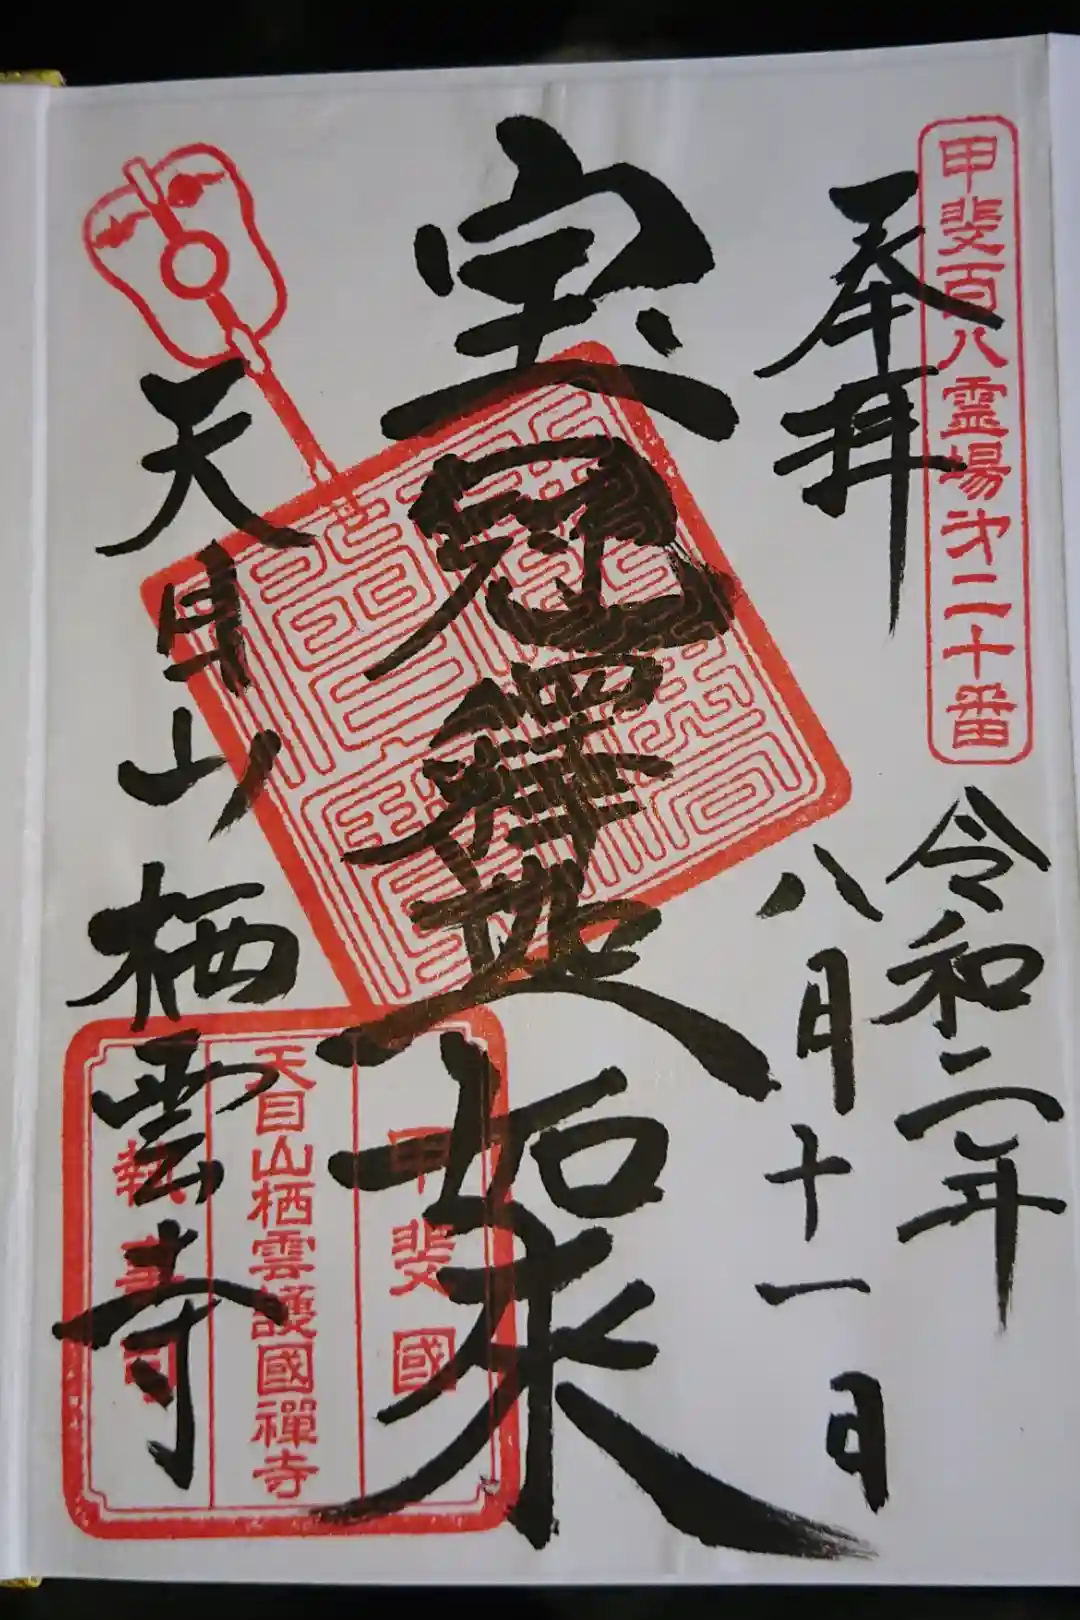 甲斐百八霊場才二十番
奉拝
令和二年
八月十一日
宝冠釋迦如来
天目山栖雲寺
甲斐國
天目山栖雲護國禪寺
執事司